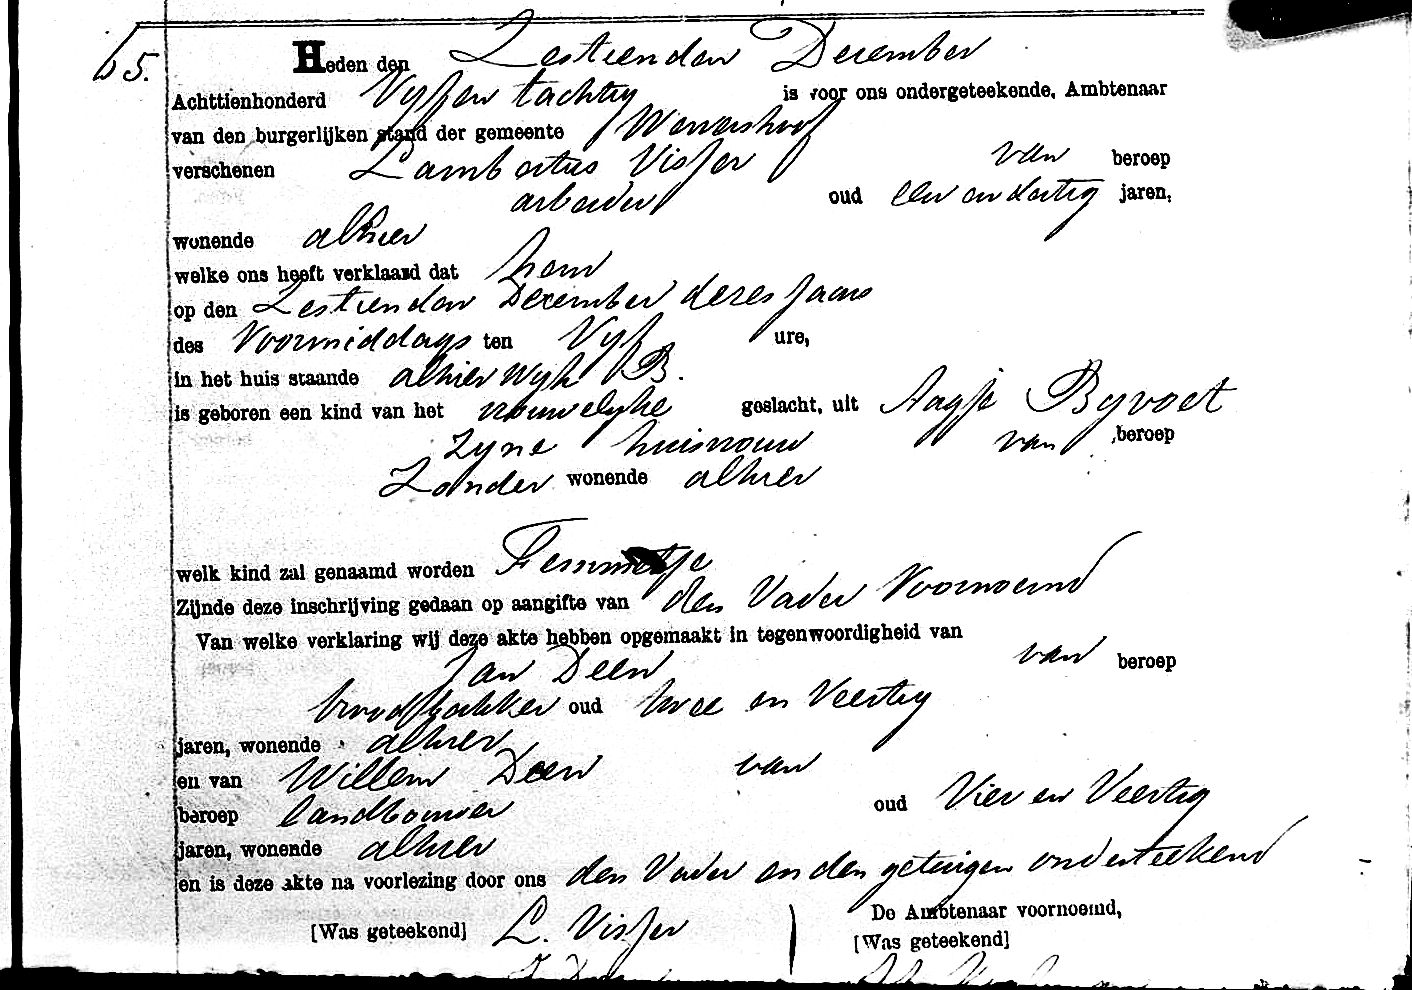 65.
Heden den Zestienden December
Achttienhonderd Vyf en tachtig is voor ons ondergeteekende, Ambtenaar
van den burgerlijken stand der gemeente Wervershoof
verschenen Lambertus Visser van beroep
arbeider oud een en dertig jaren,
wonende alhier
welke ons heeft verklaard dat hem
op den Zestienden December dezes jaars
des Voormiddags ten Vyf ure,
in het huis staande alhier Wyk B.
is geboren een kind van het vrouwelyke geslacht, uit Aagje Byvoet
zyne huisvrouw van beroep
Zonder wonende alhier
welk kind zal genaamd worden Femmetje
Zijnde deze inschrijving gedaan op aangifte van den Vader Voornoemd
Van welke verklaring wij deze akte hebben opgemaakt in tegenwoordigheid van
Jan Deen van beroep
broodbakker oud twee en Veertig
jaren, wonende alhier
en van Willem Deen van
beroep landbouwer oud Vier en Veertig
jaren, wonende alhier
en is deze akte na voorlezing door ons den Vader en den getuigen onderteekend
De Ambtenaar voornoemd,
[Was geteekend] L. Visser [Was geteekend]